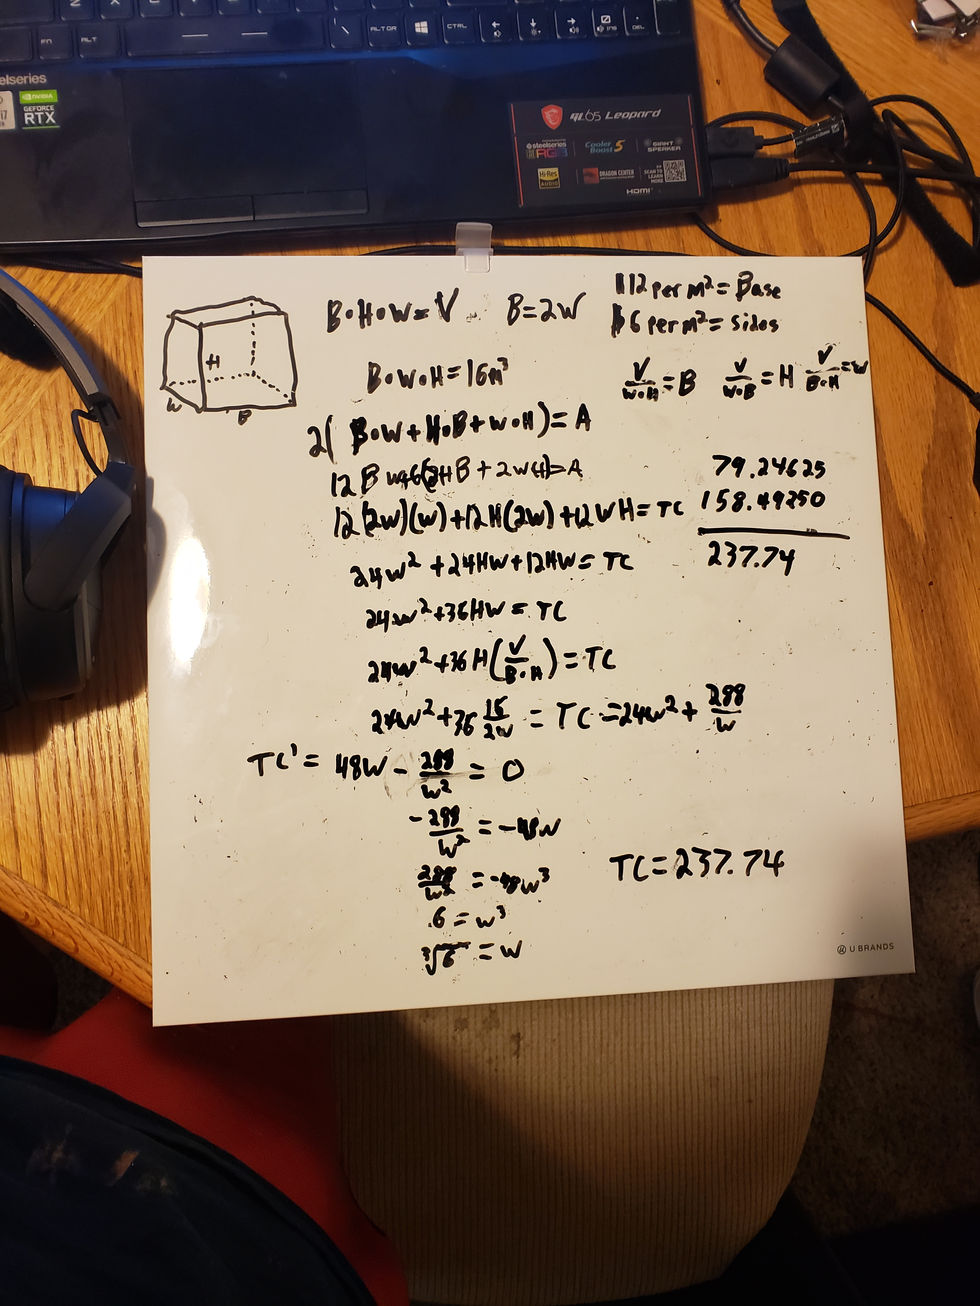 FN ALT \ ALTGR CTRL DEL
elseries
i7
NVIDIA
GEFORCE
RTX
GL65 Leopard
steelseries
RGB
Cooler
Boost 5
GIANT
SPEAKER
Hi-Res
AUDIO
DRAGON CENTER
SCAN TO
LEARN
MORE
HDMI
B·H·W=V B=2W $12 per m²= Base
$6 per m²= sides
H
W
B
B·W·H=16m³ V/W·H=B V/W·B=H V/B·H=W
2(B·W+H·B+W·H)=A
12BW+6(2HB+2WH)=A
12(2W)(W)+12H(2W)+12WH=TC
24W²+24HW+12HW=TC
24W²+36HW=TC
24W²+36H(V/B·H)=TC
24W²+36 16/2W = TC =24W²+ 288/W
TC'= 48W - 288/W² = 0
-288/W² = -48W
288/W² = -48W³
6=W³
³√6 = W
79.24625
158.49250
237.74
TC=237.74
U BRANDS